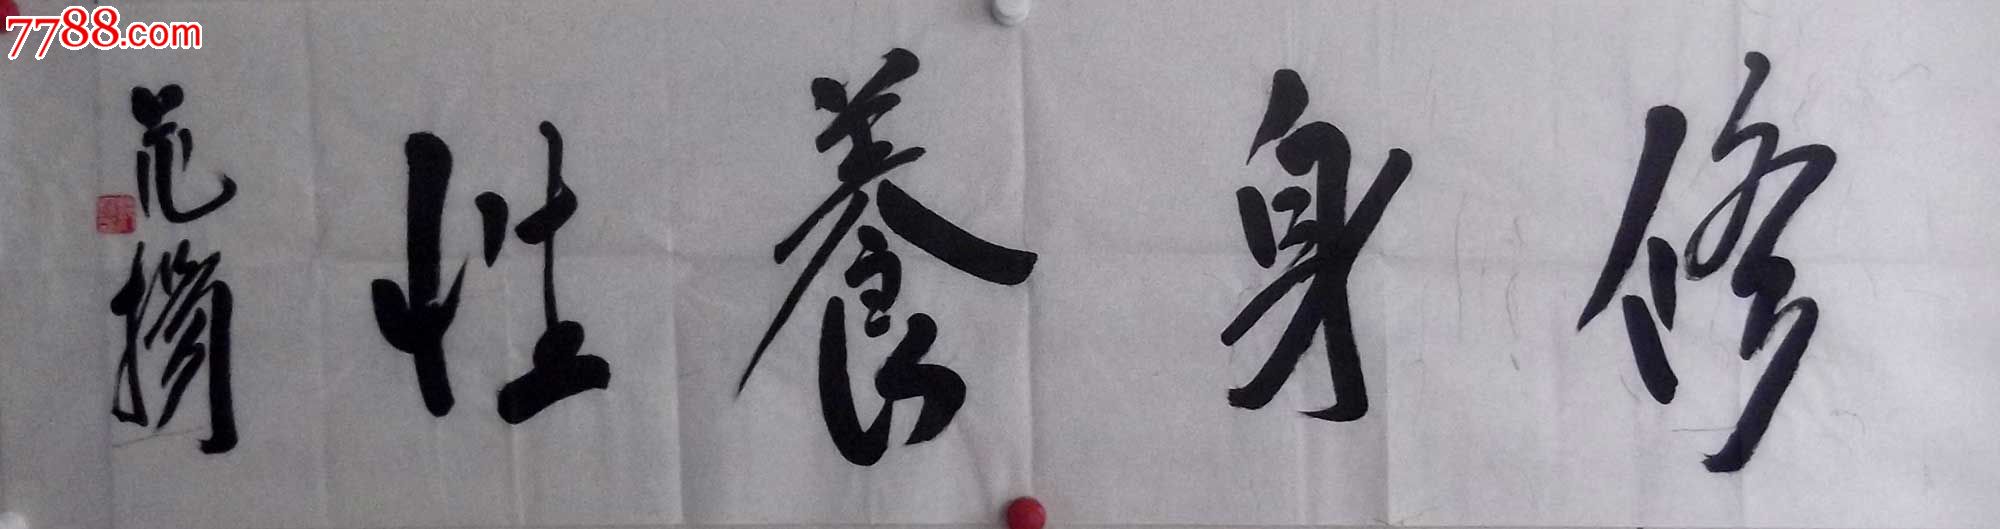 7788.com
修身養性